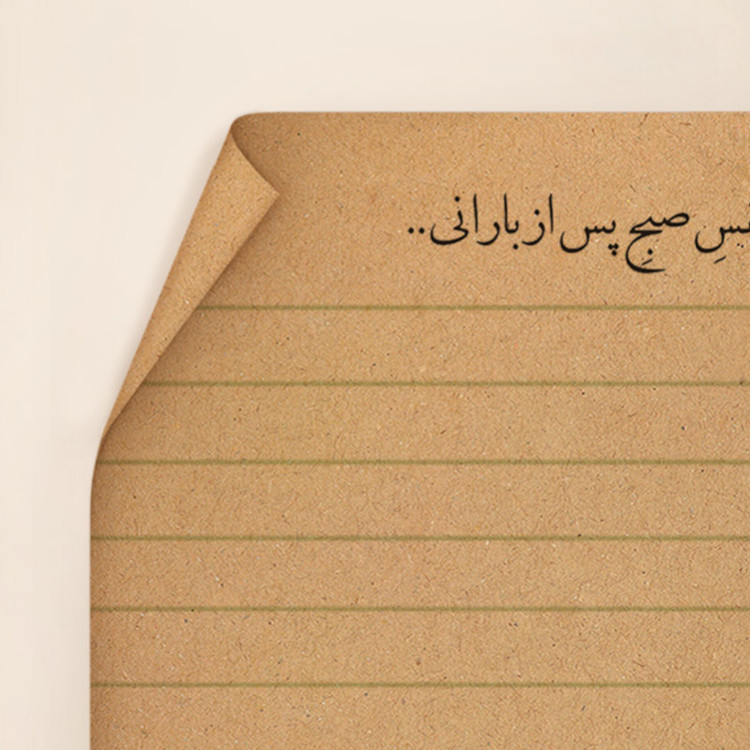 صبحِ پس از بارانی..